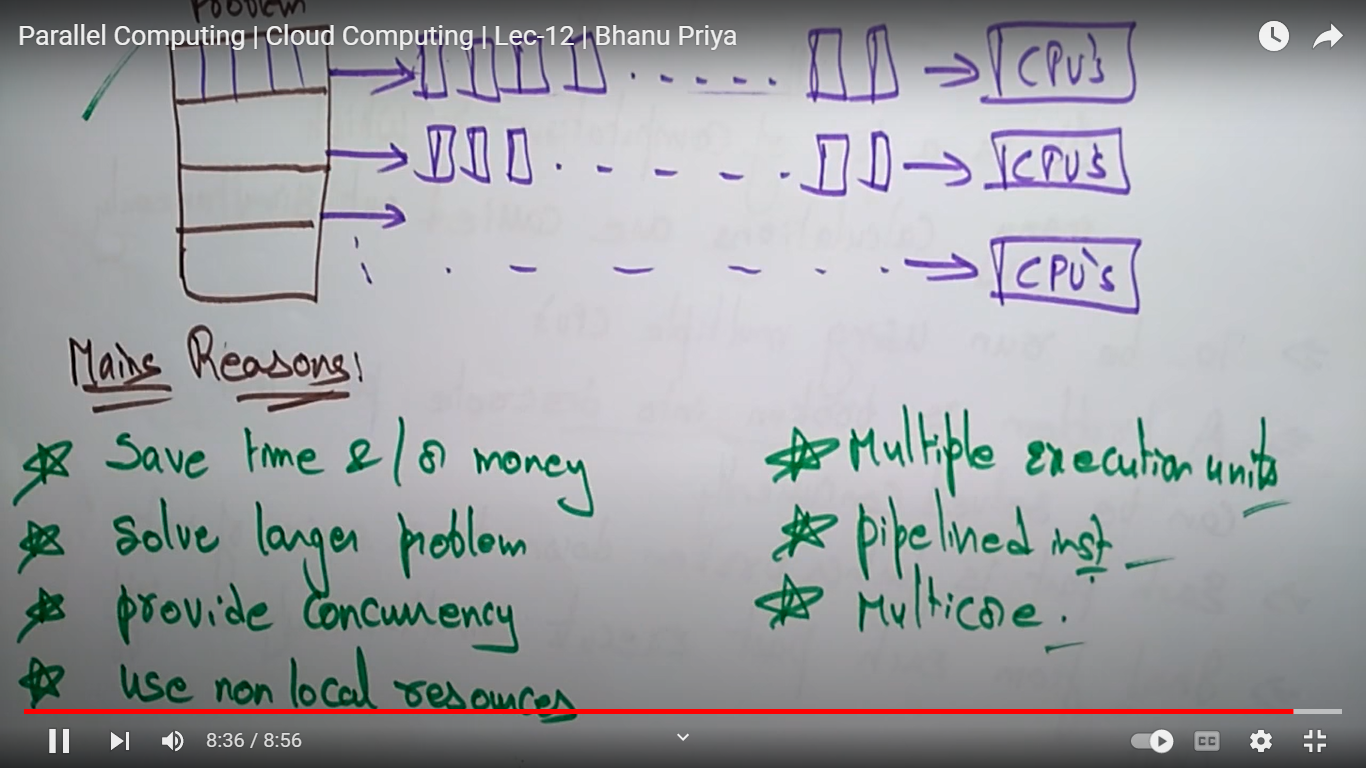 Problem
Parallel Computing | Cloud Computing | Lec-12 | Bhanu Priya
CPU's
CPU's
CPU's
Mains Reasons:
Save time & / or money
Solve larger problem
provide concurrency
use non local resources
Multiple execution units
pipelined inst
Multicore.
8:36 / 8:56
CC